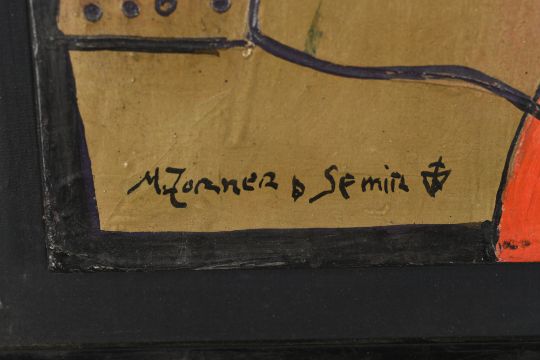 M. Zorner D Semin